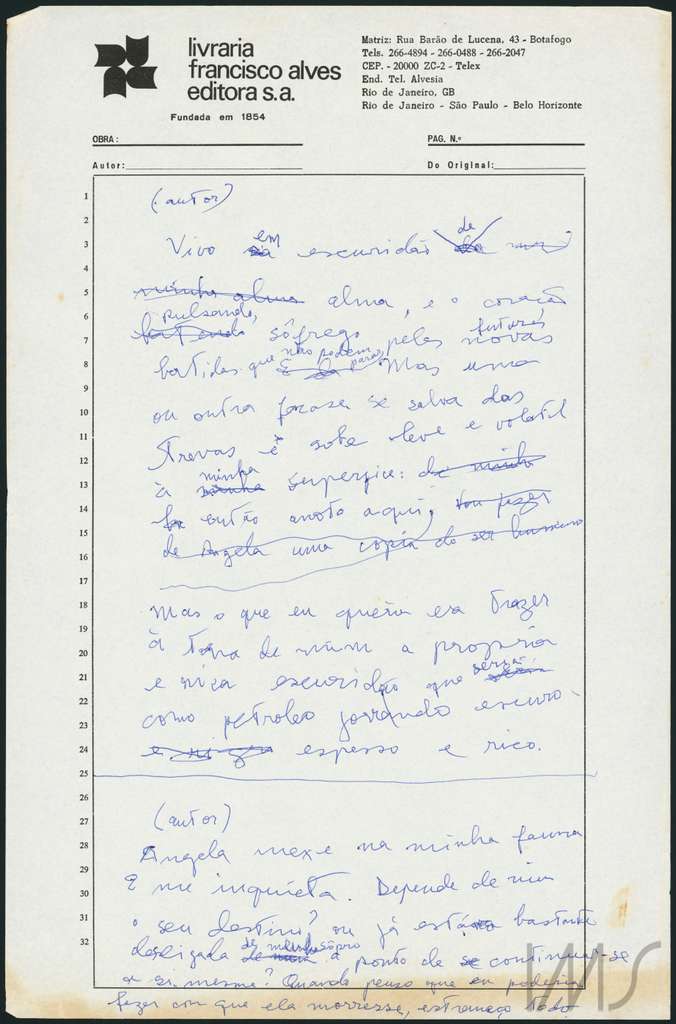 livraria
francisco alves
editora s.a.
Fundada em 1854
Matriz: Rua Barão de Lucena, 43 - Botafogo
Tels. 266-4894 - 266-0488 - 266-2047
CEP. - 20000 ZC-2 - Telex
End. Tel. Alvesia
Rio de Janeiro, GB
Rio de Janeiro - São Paulo - Belo Horizonte
OBRA:
PAG. N.º
Autor:
Do Original:
1
2
3
4
5
6
7
8
9
10
11
12
13
14
15
16
17
18
19
20
21
22
23
24
25
26
27
28
29
30
31
32
(autor)
Vivo em escuridão de
minha alma alma, e o coração
pulsando, futuras
batendo sôfrego pelas novas
batidas que não podem parar. Mas uma
ou outra frase se salva das
trevas e sobe leve e volátil
à minha superfície: de minha
então anoto aqui, vou fazer
de Angela uma copia do ser humano
Mas o que eu queria era trazer
à tona de mim a propria
e rica escuridão que seria
como petroleo jorrando escuro
espesso e rico.
(autor)
Angela mexe na minha fauna
e me inquieta. Depende de mim
o seu destino? ou já está bastante
desligada de meu sôpro a ponto de se continuar-se
a si mesma? Quando penso que eu poderia
fazer com que ela morresse, estremeço todo
IMS